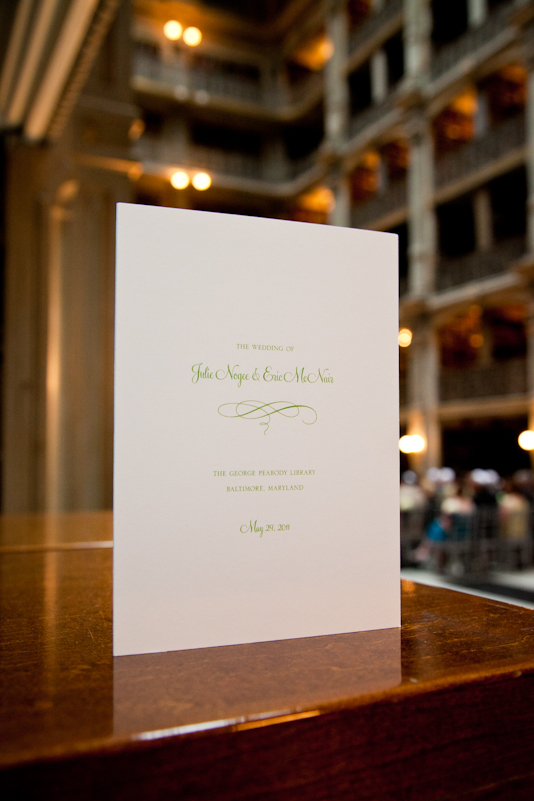 THE WEDDING OF
Julie Nogee & Eric McNair
THE GEORGE PEABODY LIBRARY
BALTIMORE, MARYLAND
May 29, 2011